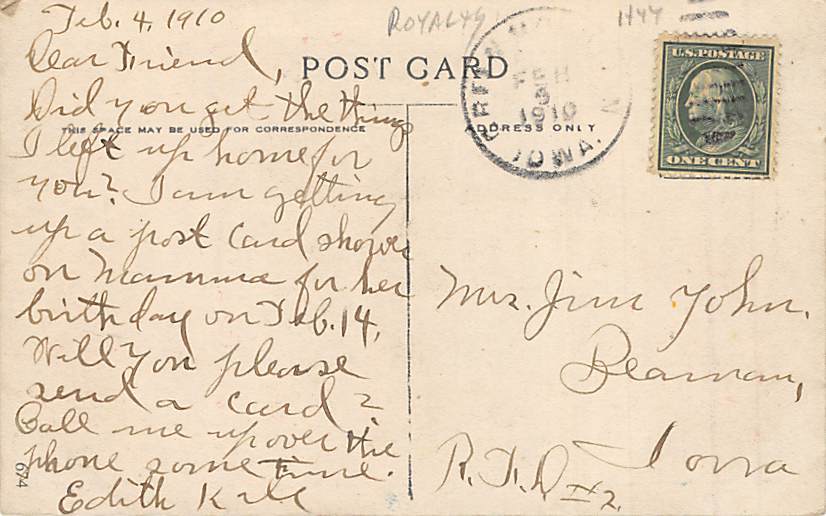 Feb. 4, 1910
Dear Friend,
Did you get the things
I left up home for
you? I am getting
up a post card shower
on Mamma for her
birthday on Feb. 14,
Will you please
send a card?
Call me up over the
phone some time.
Edith
674
ROYALTY
1144
POST CARD
THIS SPACE MAY BE USED FOR CORRESPONDENCE
ADDRESS ONLY
FEB
5
1910
IOWA.
U.S. POSTAGE
ONE CENT
Mrs. Jim John.
Beaman,
Iowa
R.F.D #2.